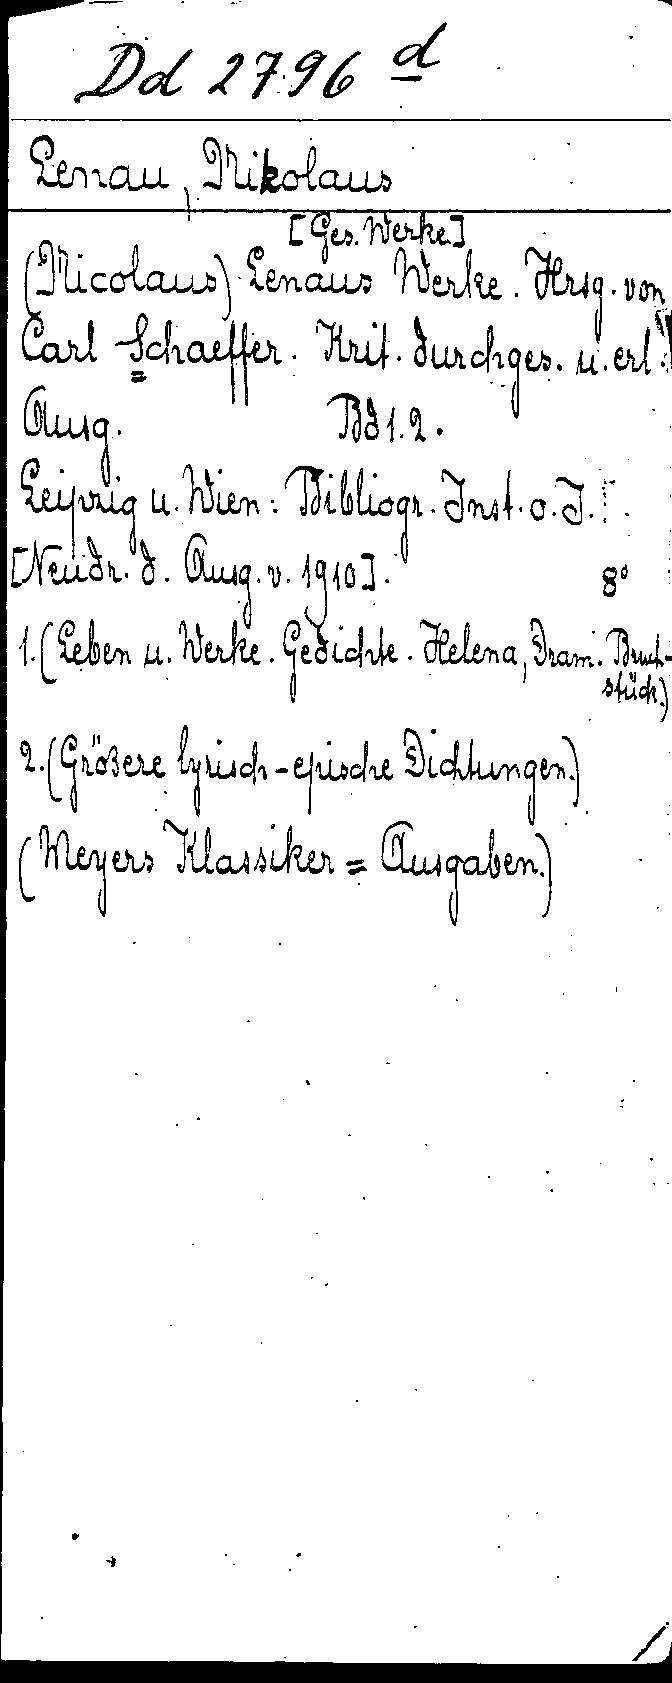 Dd 2796 d
Lenau, Nikolaus
[Ges. Werke.]
(Nicolaus) Lenaus Werke. Hrsg. von
Carl Schaeffer. Krit. durchges. u. erl.
Ausg. Bd 1. 2.
Leipzig u. Wien: Bibliogr. Inst. o. J.
[Neudr. d. Ausg. v. 1910]. 8°
1. (Leben u. Werke. Gedichte. Helena, Dram. Bruch-
stück.)
2. (Größere lyrisch-epische Dichtungen.)
(Meyers Klassiker = Ausgaben.)